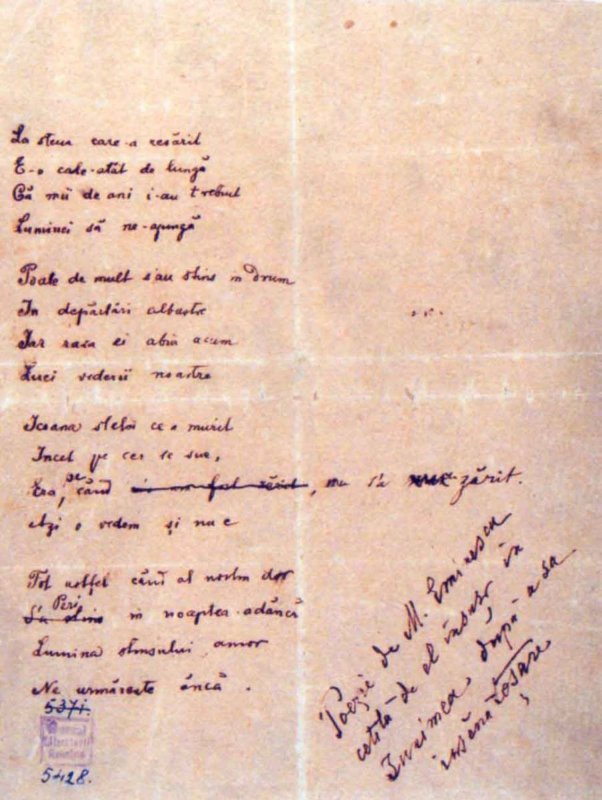 La steua care-a resărit
E-o cale-atât de lungă
Că mii de ani i-au trebuit
Luminei să ne-ajungă
Poate de mult s'au stins in drum
In depărtări albastre
Iar raza ei abia acum
Luci vederii noastre
Icoana stelei ce-a murit
Incet pe cer se sue,
Era, pe când, nu s'a zărit.
Azi o vedem și nu e
Tot astfel când al nostru dor
Peri
S'a stins in noaptea-adâncă
Lumina stinsului amor
Ne urmărește âncă.
5371.
Muzeul
Literaturii
Române
5428.
Poezie de M. Eminescu
cetită de el însuși în
Junimea după a sa
însănătoșare